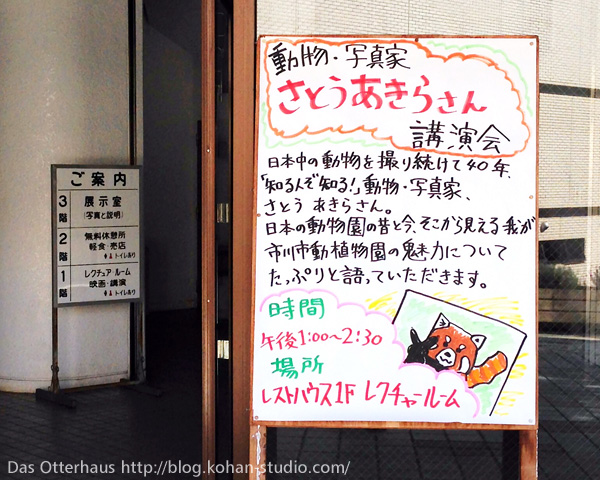 動物・写真家
さとうあきらさん
講演会
日本中の動物を撮り続けて40年、
「知るんぞ知る!」動物・写真家、
さとう あきらさん。
日本の動物園の昔と今、そこから見える我が
市川市動植物園の魅力について
たっぷりと語っていただきます。
時間
午後1:00〜2:30
場所
レストハウス1F レクチャールーム
ご案内
3階 展示室
(写真と説明)
2階 無料休憩所
軽食・売店
トイレあり
1階 レクチュア・ルーム
映画・講演
トイレあり
Das Otterhaus http://blog.kohan-studio.com/